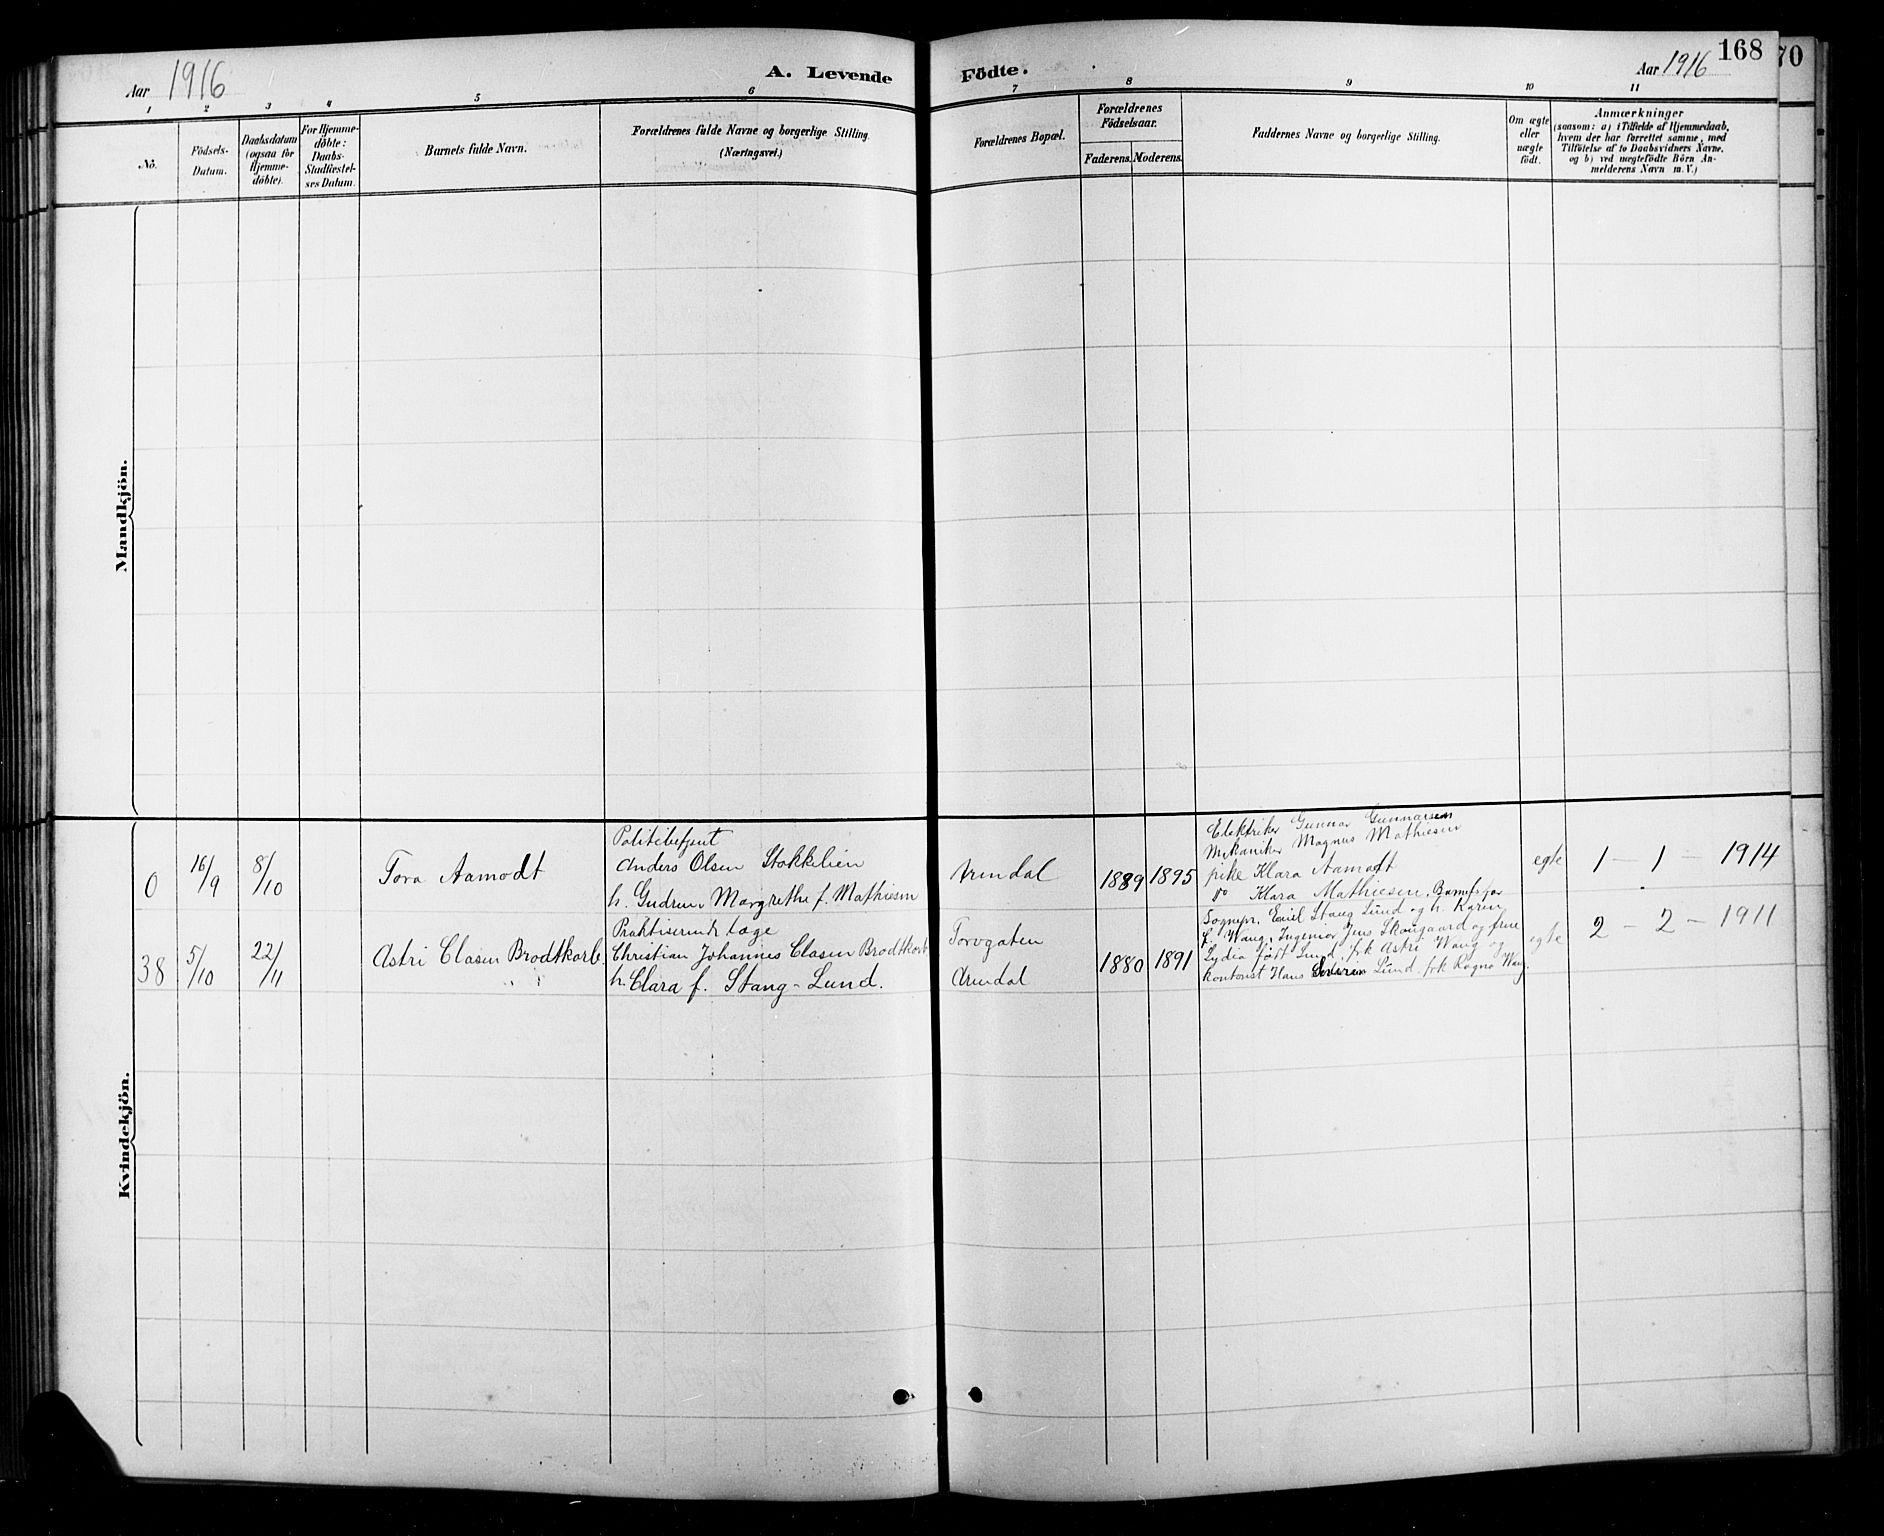 Aar 1916
A. Levende
Födte.
Aar 1916
168
70
1 2 3 4 5 6 7 8 9 10 11
No.
Födsels-
Datum.
Daabsdatum
(ogsaa for
Hjemme-
döbte).
For Hjemme-
döbte:
Daabs-
Stadfæstel-
ses Datum.
Barnets fulde Navn.
Forældrenes fulde Navne og borgerlige Stilling.
(Næringsvei.)
Forældrenes Bopæl.
Forældrenes
Födselsaar.
Faderens. Moderens.
Faddernes Navne og borgerlige Stilling.
Om ægte
eller
uægte
födt.
Anmærkninger
(saasom: a) i Tilfælde af Hjemmedaab,
hvem der har forrettet samme, med
Tilföielse af to Daabsvidners Navne,
og b) ved uægtefödte Börn An-
melderens Navn m. V.)
Mandkjön.
Kvindekjön.
0
16/9
8/10
Tora Aamodt
Politibetjent
Anders Olsen Stokkelien
h. Gudrun Margrethe f. Mathiesen
Arendal
1889
1895
Elektriker Gunnar Gunnarsen
Mekaniker Magnus Mathiesen
pike Klara Aamodt
do Klara Mathiesen, Barnets far
egte
1 - 1 - 1914
38
5/10
22/11
Astri Clasen Brodtkorb.
Praktiserende læge
Christian Johannes Clasen Brodtkorb
h. Clara f. Stang-Lund.
Torvgaten
Arendal
1880
1891
Sognepr. Emil Stang Lund og h. Karen
f. Wang, Ingeniør Jens Skougaard og frue
Lydia født Lund, frk Astri Wang og
kontorist Hans Lund. frk Ragna Wang.
egte
2 - 2 - 1911